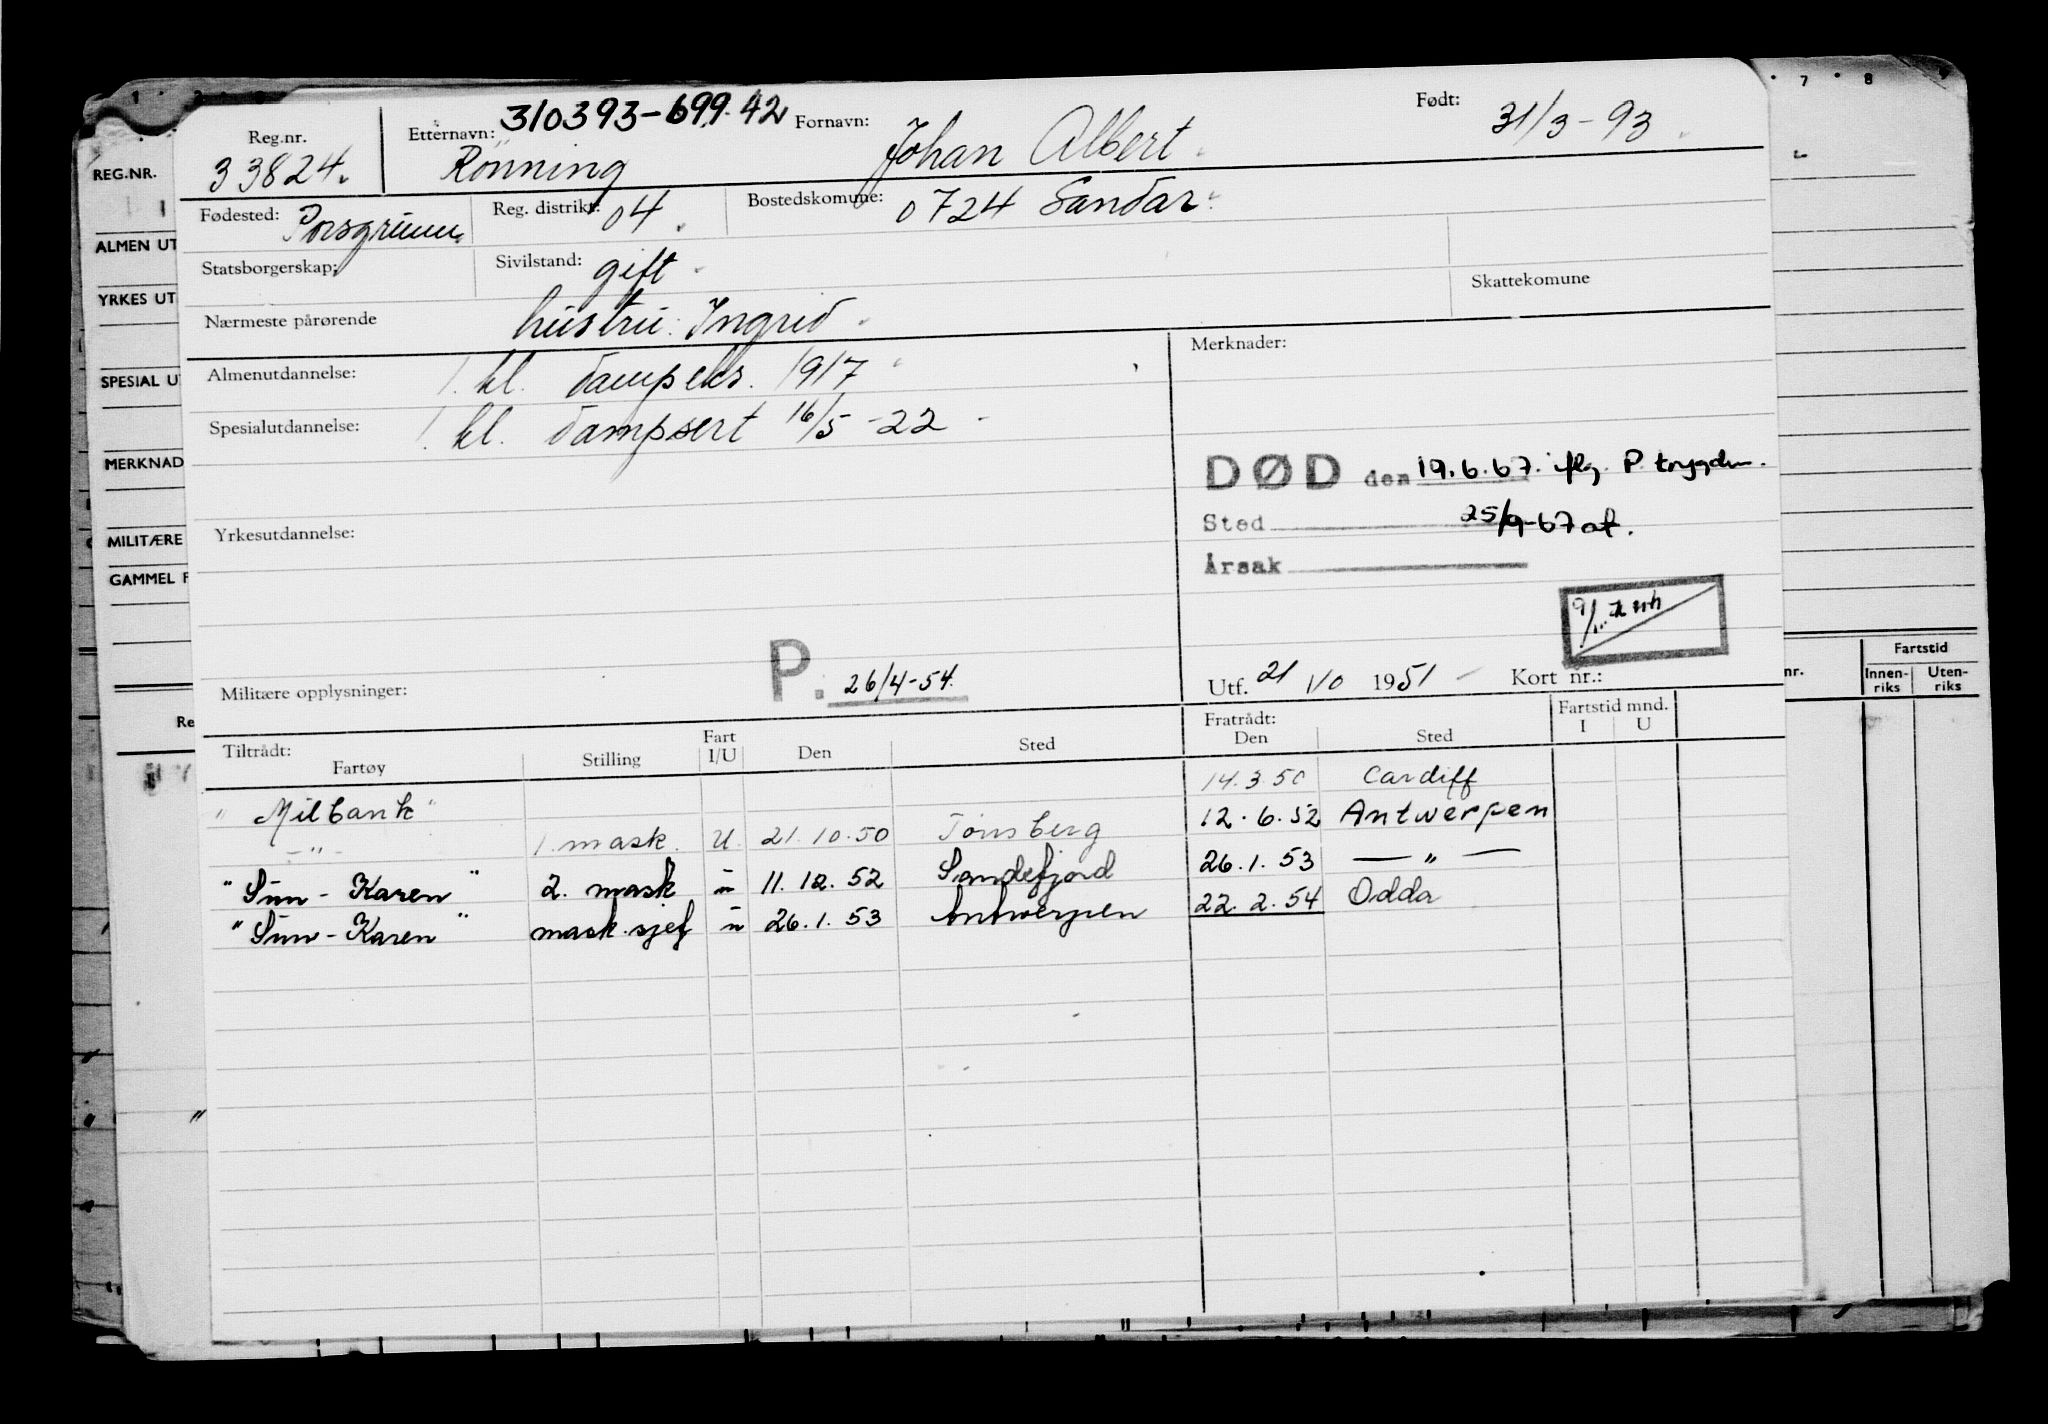 Reg.nr. Etternavn: 310393-699.42 Fornavn: Født:
33824. Rönning Johan Albert 31/3-93
Fødested: Porsgrunn Reg. distrikt: 04. Bostedskomune: 0724 Sandar
Statsborgerskap: Sivilstand: gift Skattekomune
Nærmeste pårørende hustru: Ingrid
Almenutdannelse: 1. kl. dampeks. 1917 Merknader:
Spesialutdannelse: 1. kl. dampsert 16/5-22
DØD den 19.6.67. iflg. P. trygden.
Sted 25/9-67
Årsak
Yrkesutdannelse:
Militære opplysninger: P. 26/4-54.
Utf. 21/10 1951 Kort nr.:
Tiltrådt: Fratrådt: Fartstid mnd.
Fartøy Stilling Fart I/U Den Sted Den Sted I U
"Milbank" 14.3.50 Cardiff
-"- 1. mask. U. 21.10.50 Tönsberg 12.6.52 Antwerpen
"Sun-Karen" 2. mask u 11.12.52 Sandefjord 26.1.53 — " —
"Sun-Karen" mask.sjef u 26.1.53 Antwerpen 22.2.54 Odda
REG.NR.
ALMEN UT
YRKES UT
SPESIAL U
MERKNAD
MILITÆRE
GAMMEL F
Re
nr.
Fartstid
Innen-riks Uten-riks
7 8